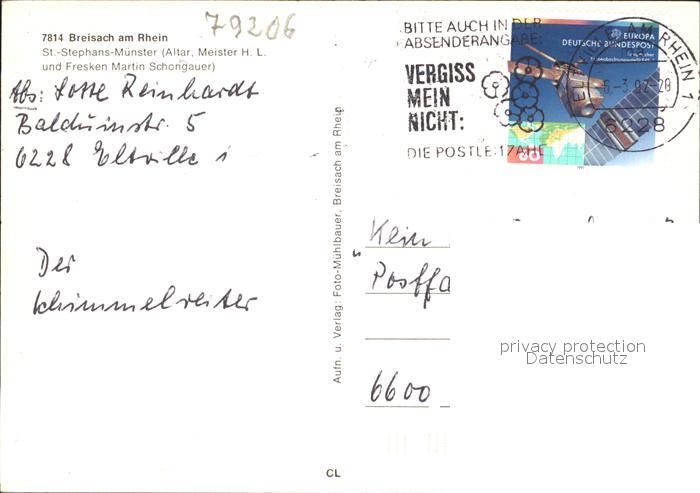 79206
7814 Breisach am Rhein
St.-Stephans-Münster (Altar, Meister H. L.
und Fresken Martin Schongauer)
Abs: Lotte Reinhardt
Balduinstr. 5
6228 Eltville 1
Der
Schimmelreiter
Aufn. u. Verlag: Foto-Mühlbauer, Breisach am Rhein
CL
BITTE AUCH IN DER
ABSENDERANGABE:
VERGISS
MEIN
NICHT:
DIE POSTLEITZAHL
EUROPA
DEUTSCHE BUNDESPOST
60
1991
ELTVILLE AM RHEIN 1
6228
„Klein
Postfa
6600
privacy protection
Datenschutz